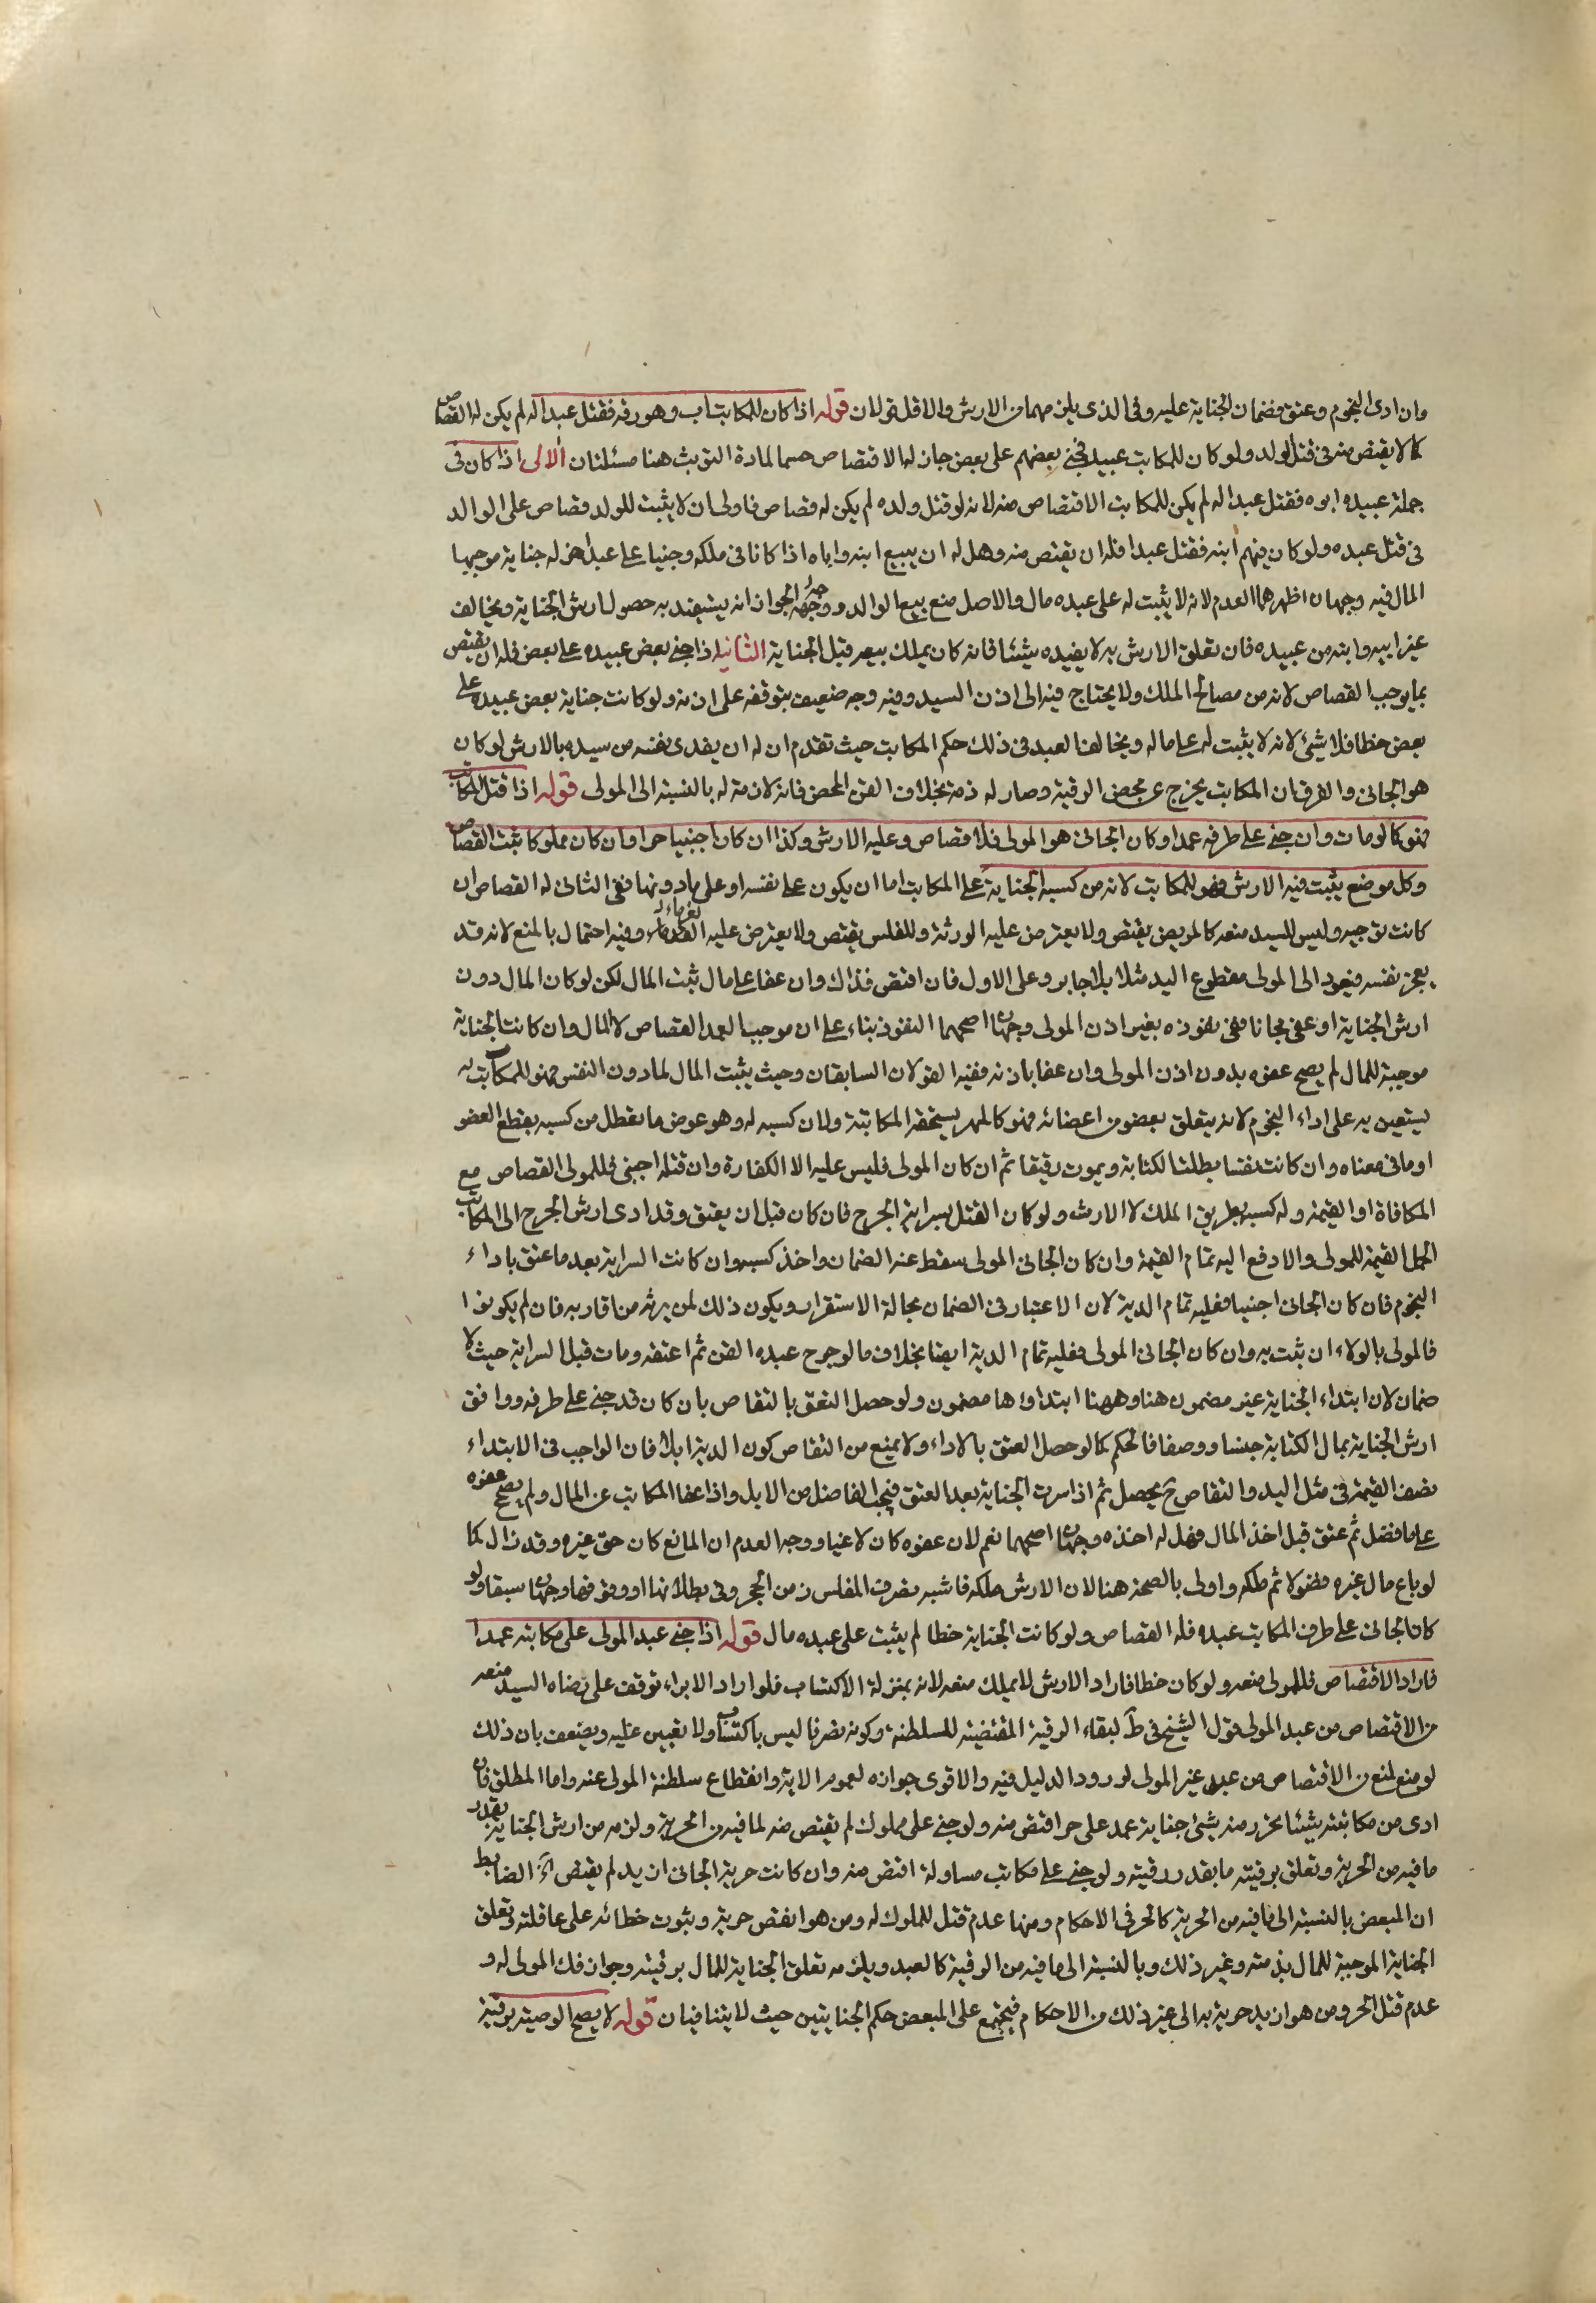 وان ادى النجوم وعتق فضمان الجناية عليه وفى الذى يلزمهما من الارش والاقل قولان قوله اذا كان للمكاتب اب وهو رقه فقتل عبدا له لم يكن له القصاص
كما لا يقتص منه فى قتل الولد ولو كان للمكاتب عبيد فجنى بعضهم على بعض جاز له الاقتصاص حسما لمادة التوثب هنا مسئلتان الاولى اذا كان فى
جملة عبيده ابوه فقتل عبدا له لم يكن للمكاتب الاقتصاص منه لانه لو قتل ولده لم يكن له قصاص فاولى ان لا يثبت للولد قصاص على الوالد
فى قتل عبده ولو كان فيهم ابنه فقتل عبدا فله ان يقتص منه وهل له ان يبيع ابنه واباه اذا كانا فى ملكه وجنيا على عبد اخر له جناية موجبها
المال فيه وجهان اظهرهما العدم لانه لا يثبت له على عبده مال والاصل منع بيع الوالد ووجه الجواز انه يستفيد به حصول ارش الجناية ويخالف
غير ابيه وابنه من عبيده فان تعلق الارش به لا يفيده شيئا فانه كان يملك بيعه قبل الجناية الثانية اذا جنى بعض عبيده على بعض فله ان يقتص
بما يوجب القصاص لانه من مصالح الملك ولا يحتاج فيه الى اذن السيد وفيه وجه ضعيف بتوقفه على اذنه ولو كانت جناية بعض عبيده على
بعض خطا فلا شئ لانه لا يثبت له على ماله ويخالف العبد فى ذلك حكم المكاتب حيث تقدم ان له ان يفدى نفسه من سيده بالارش لو كان
هو الجانى والفرق ان المكاتب يخرج عن محض الرقية وصار له ذمة بخلاف القن المحض فانه لا ذمة له بالنسبة الى المولى قوله اذا قتل المكاتب
فهو كما لو مات وان جنى على طرفه عمدا وكان الجانى هو المولى فلا قصاص وعليه الارش وكذا ان كان اجنبيا حرا وان كان مملوكا ثبت القصاص
وكل موضع يثبت فيه الارش فهو للمكاتب لانه من كسبه الجناية على المكاتب اما ان يكون على نفسه او على مادونها ففى الثانى له القصاص ان
كانت توجبه وليس للسيد منعه كالمريض يقتص ولا يعترض عليه الورثة وللفلس يقتص ولا يعترض عليه الغرماء وفيه احتمال بالمنع لانه قد
يعجز نفسه فيعود الى المولى مقطوع اليد مثلا بلا جابر وعلى الاول فان اقتص فذاك وان عفا على مال ثبت المال لكن لو كان المال دون
ارش الجناية او عفى مجانا ففى نفوذه بغير اذن المولى وجهان اصحهما النفوذ بناء على ان موجب العمد القصاص لا المال وان كانت الجناية
موجبة للمال لم يصح عفوه بدون اذن المولى وان عفا باذنه ففيه القولان السابقان وحيث يثبت المال لمادون النفس فهو للمكاتب له
يستعين به على اداء النجوم لانه يتعلق بعضو من اعضائه فهو كالمهر يستحقه المكاتبة ولان كسبه له وهو عوض ما تعطل من كسبه بقطع العضو
او ما فى معناه وان كانت نفسا بطلت الكتابة ويموت رقيقا ثم ان كان المولى فليس عليه الا الكفارة وان قتله اجنبى فللمولى القصاص مع
المكافاة او القيمة وله كسبه بطريق الملك لا الارث ولو كان القتل بسراية الجرح فان كان قبل ان يعتق وقد ادى ارش الجرح الى المكاتب
اكمل القيمة للمولى والا دفع اليه تمام القيمة وان كان الجانى المولى سقط عنه الضمان واخذ كسبه وان كانت السراية بعد ما عتق باداء
النجوم فان كان الجانى اجنبيا فعليه تمام الدية لان الاعتبار فى الضمان بحالة الاستقرار ويكون ذلك لمن يرثه من اقاربه فان لم يكونوا
فالمولى بالولاء ان ثبت به وان كان الجانى المولى فعليه تمام الدية ايضا بخلاف ما لو جرح عبده القن ثم اعتقه ومات قبل السراية حيث لا
ضمان لان ابتداء الجناية غير مضمون هنا وههنا ابتداؤها مضمون ولو حصل التعق بالتقاص بان كان قد جنى على طرفه ووافق
ارش الجناية بمال الكتابة جنسا ووصفا فالحكم كما لو حصل العتق بالاداء ولا يمنع من التقاص كون الدية ابلا فان الواجب فى الابتداء
نصف القيمة فى مثل اليد والتقاص ح يحصل ثم اذا سرت الجناية بعد العتق فيجب الفاضل من الابل واذا عفا المكاتب عن المال ولم يصح عفوه
على ما فضل ثم عتق قبل اخذ المال فهل له اخذه وجهان اصحهما نعم لان عفوه كان لاغيا ووجه العدم ان المانع كان حق غيره وقد زال كما
لو باع مال غيره فضولا ثم ملكه واولى بالصحة هنا لان الارش ملكه فاشبه تصرف المفلس زمن الحجر وفى بطلانها او وقوفها وجهان سبقا ولو
كان الجانى على طرف المكاتب عبده فله القصاص ولو كانت الجناية خطا لم يثبت على عبده مال قوله اذا جنى عبد المولى على مكاتبه عمدا
فاراد الاقتصاص فللمولى منعه ولو كان خطا فاراد الارش لا يملك منعه لانه بمنزلة الاكتساب فلو اراد الابراء توقف على رضاه السيد منعه
من الاقتصاص من عبد المولى قول الشيخ فى ط لبقاء الرقية المقتضية للسلطنة وكونه تصرفا ليس باكتساب ولا تعيين عليه ويضعف بان ذلك
لو منع لمنع من الاقتصاص من عبد غير المولى لورود الدليل فيه والاقوى جوازه لعموم الاية وانقطاع سلطنة المولى عنه واما المطلق فان
ادى من مكاتبته شيئا تحرر منه شئ جناية عمد على حر اقتص منه ولو جنى على مملوك لم يقتص منه لما فيه من الحرية ولزمه من ارش الجناية بقدر
ما فيه من الحرية وتعلق برقبته ما بقدر رقيته ولو جنى على مكاتب مساو له اقتص منه وان كانت حرية الجانى ازيد لم يقتص الضابط
ان المبعض بالنسبة الى ما فيه من الحرية كالحر فى الاحكام ومنها عدم قتل للملوك له ومن هو انقص حرية وثبوت خطائه على عاقلته وتعلق
الجناية الموجبة للمال بذمته وغير ذلك وبالنسبة الى ما فيه من الرقية كالعبد ويلزمه تعلق الجناية للمال برقبته وجواز فك المولى له و
عدم قتل الحر ومن هو ازيد حرية به الى غير ذلك من الاحكام فيجتمع على المبعض حكم الجنايتين حيث لا يتنافيان قوله لا يصح الوصية برقبة